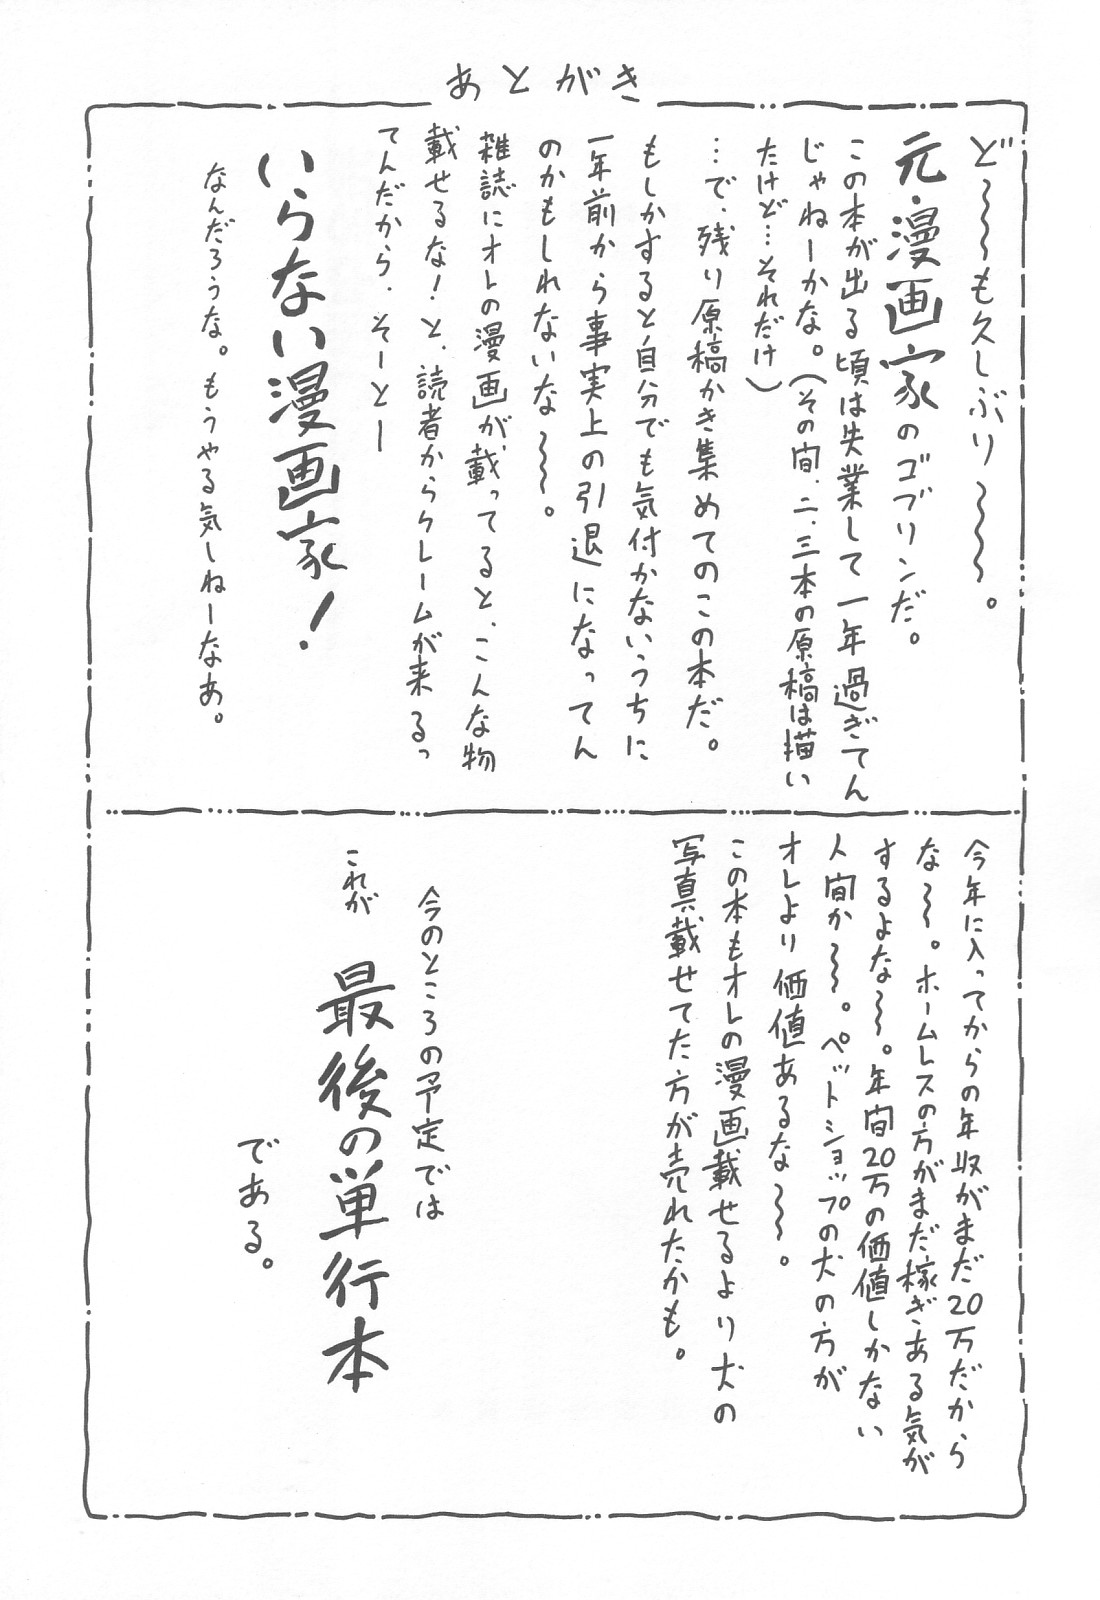 あとがき
ど〜〜〜も久しぶり〜〜〜。
元・漫画家のゴブリンだ。
この本が出る頃は失業して一年過ぎてん
じゃねーかな。(その間、二、三本の原稿は描い
たけど…それだけ)
…で、残り原稿かき集めてのこの本だ。
もしかすると自分でも気付かないうちに
一年前から事実上の引退になってん
のかもしれないな〜〜。
雑誌にオレの漫画が、載ってると、こんな物
載せるな!と、読者からクレームが来るっ
てんだから、そーとー
いらない漫画家!
なんだろうな。もうやる気しねーなあ。
今年に入ってからの年収がまだ20万だから
な〜〜。ホームレスの方がまだ稼ぎある気が
するよな〜〜。年間20万の価値しかない
人間か〜〜。ペットショップの犬の方が
オレより価値あるな〜〜。
この本もオレの漫画載せるより犬の
写真載せてた方が売れたかも。
今のところの予定では
これが 最後の単行本
である。